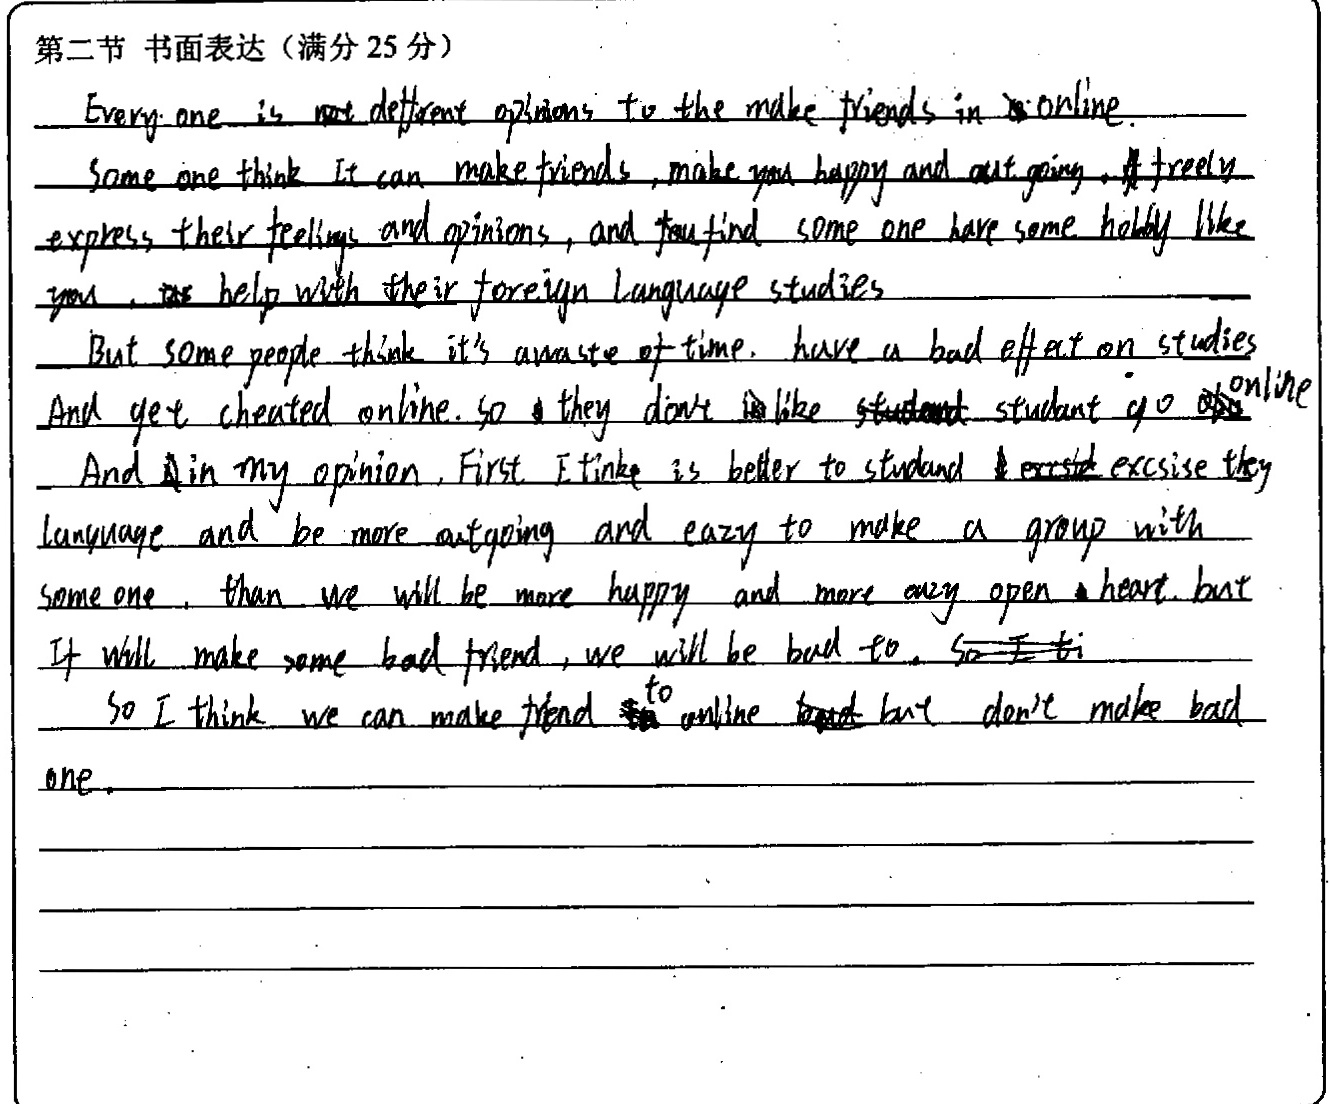 第二节 书面表达（满分 25 分）
Every one is deffrent opinions to the make friends in online.
Some one think It can make friends, make you happy and out going. freely
express their feelings and opinions, and you find some one have some hobby like
you. help with their foreign language studies
But some people think it's awaste of time. have a bad effect on studies
And get cheated online. so they don't like student go online
And in my opinion. First I tinke is better to studand excsise they
language and be more outgoing and eazy to make a group with
some one. than we will be more happy and more eazy open heart. but
It will make some bad friend, we will be bad to.
So I think we can make friend to online but don't make bad
one.